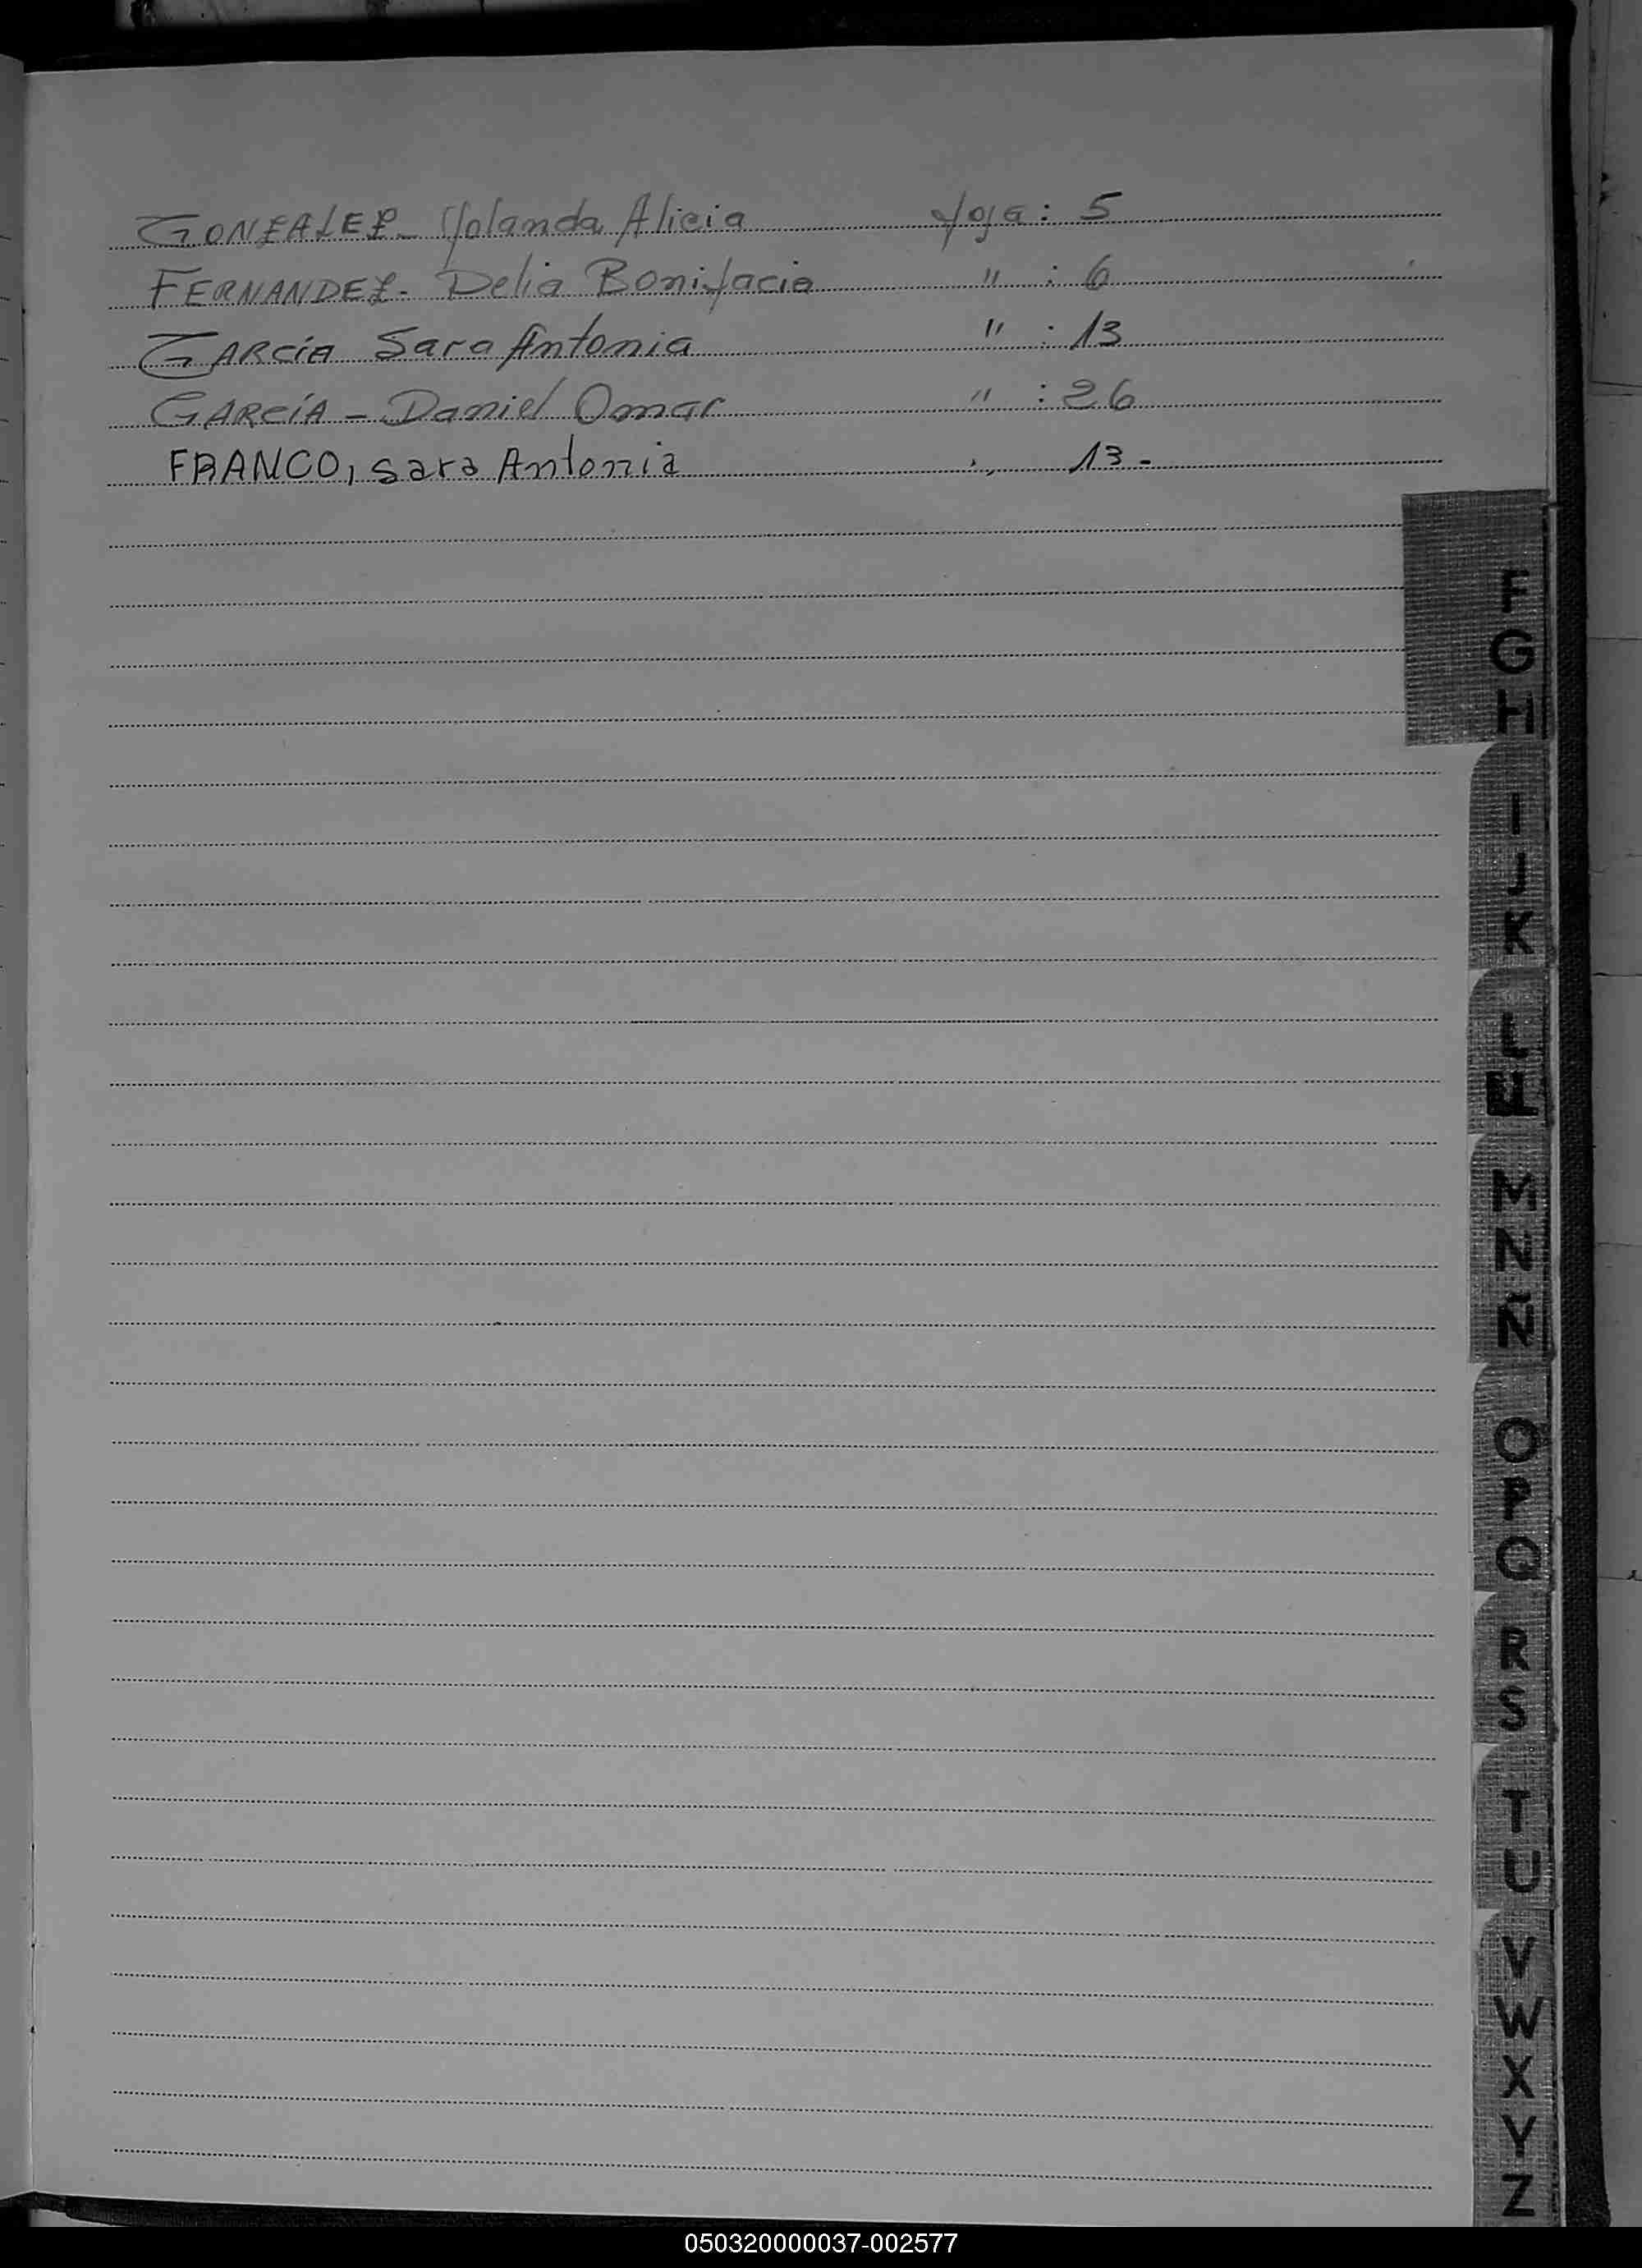 GONZALEZ- Yolanda Alicia foja: 5
FERNANDEZ- Delia Bonifacia " : 6
GARCIA Sara Antonia " : 13
GARCÍA - Daniel Omar " : 26
FRANCO, Sara Antonia " 13-
F
G
H
I
J
K
L
M
N
Ñ
O
P
Q
R
S
T
U
V
W
X
Y
Z
050320000037-002577